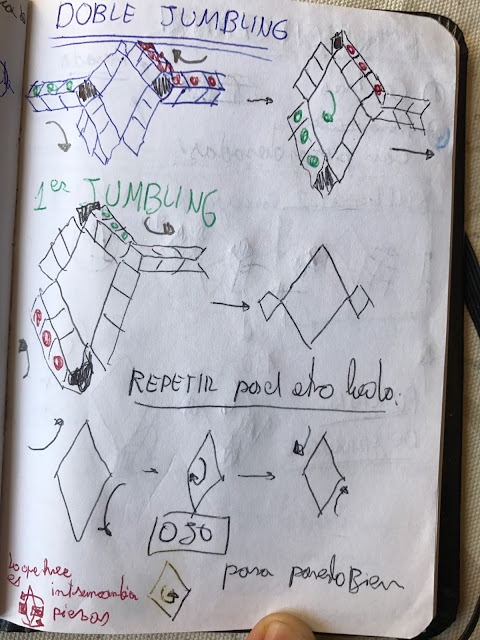 DOBLE JUMBLING
1er JUMBLING
REPETIR por el otro lado.
OJO
para ponerlo Bien
lo que hace
es intercambia
piezas